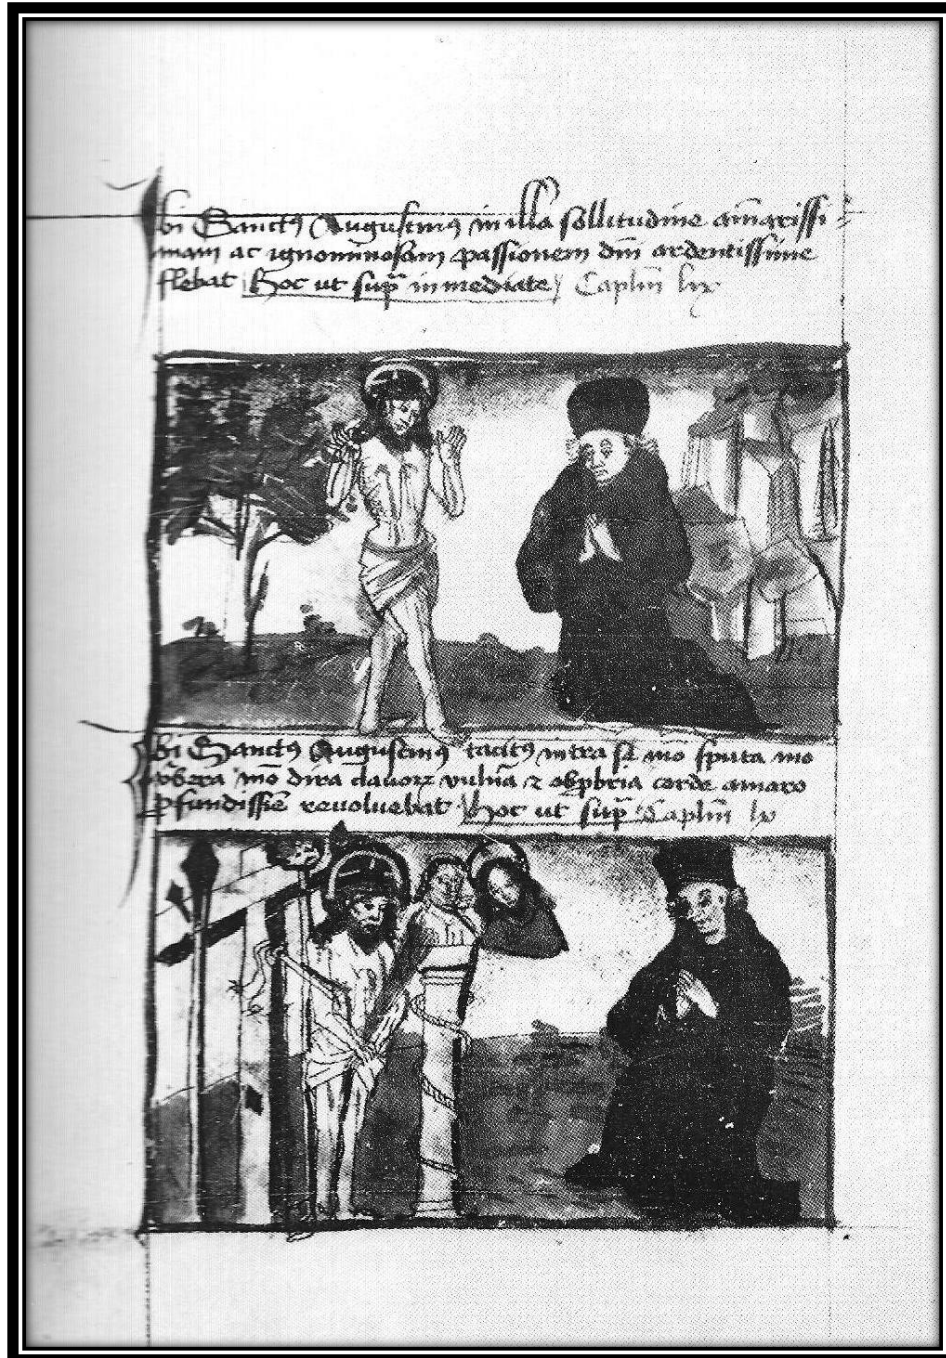 Ubi Sanctus Augustinus in illa sollitudine amarissi-
mam ac ignominosam passionem dni ardentissime
flebat Hoc ut supra inmediate Caplm lix
Ubi Sanctus Augustinus tacitus intra se mo sputa mo
verbera mo dira clavorum vulna et obprbria corde amaro
revoluebat Hoc ut supra Caplm lx